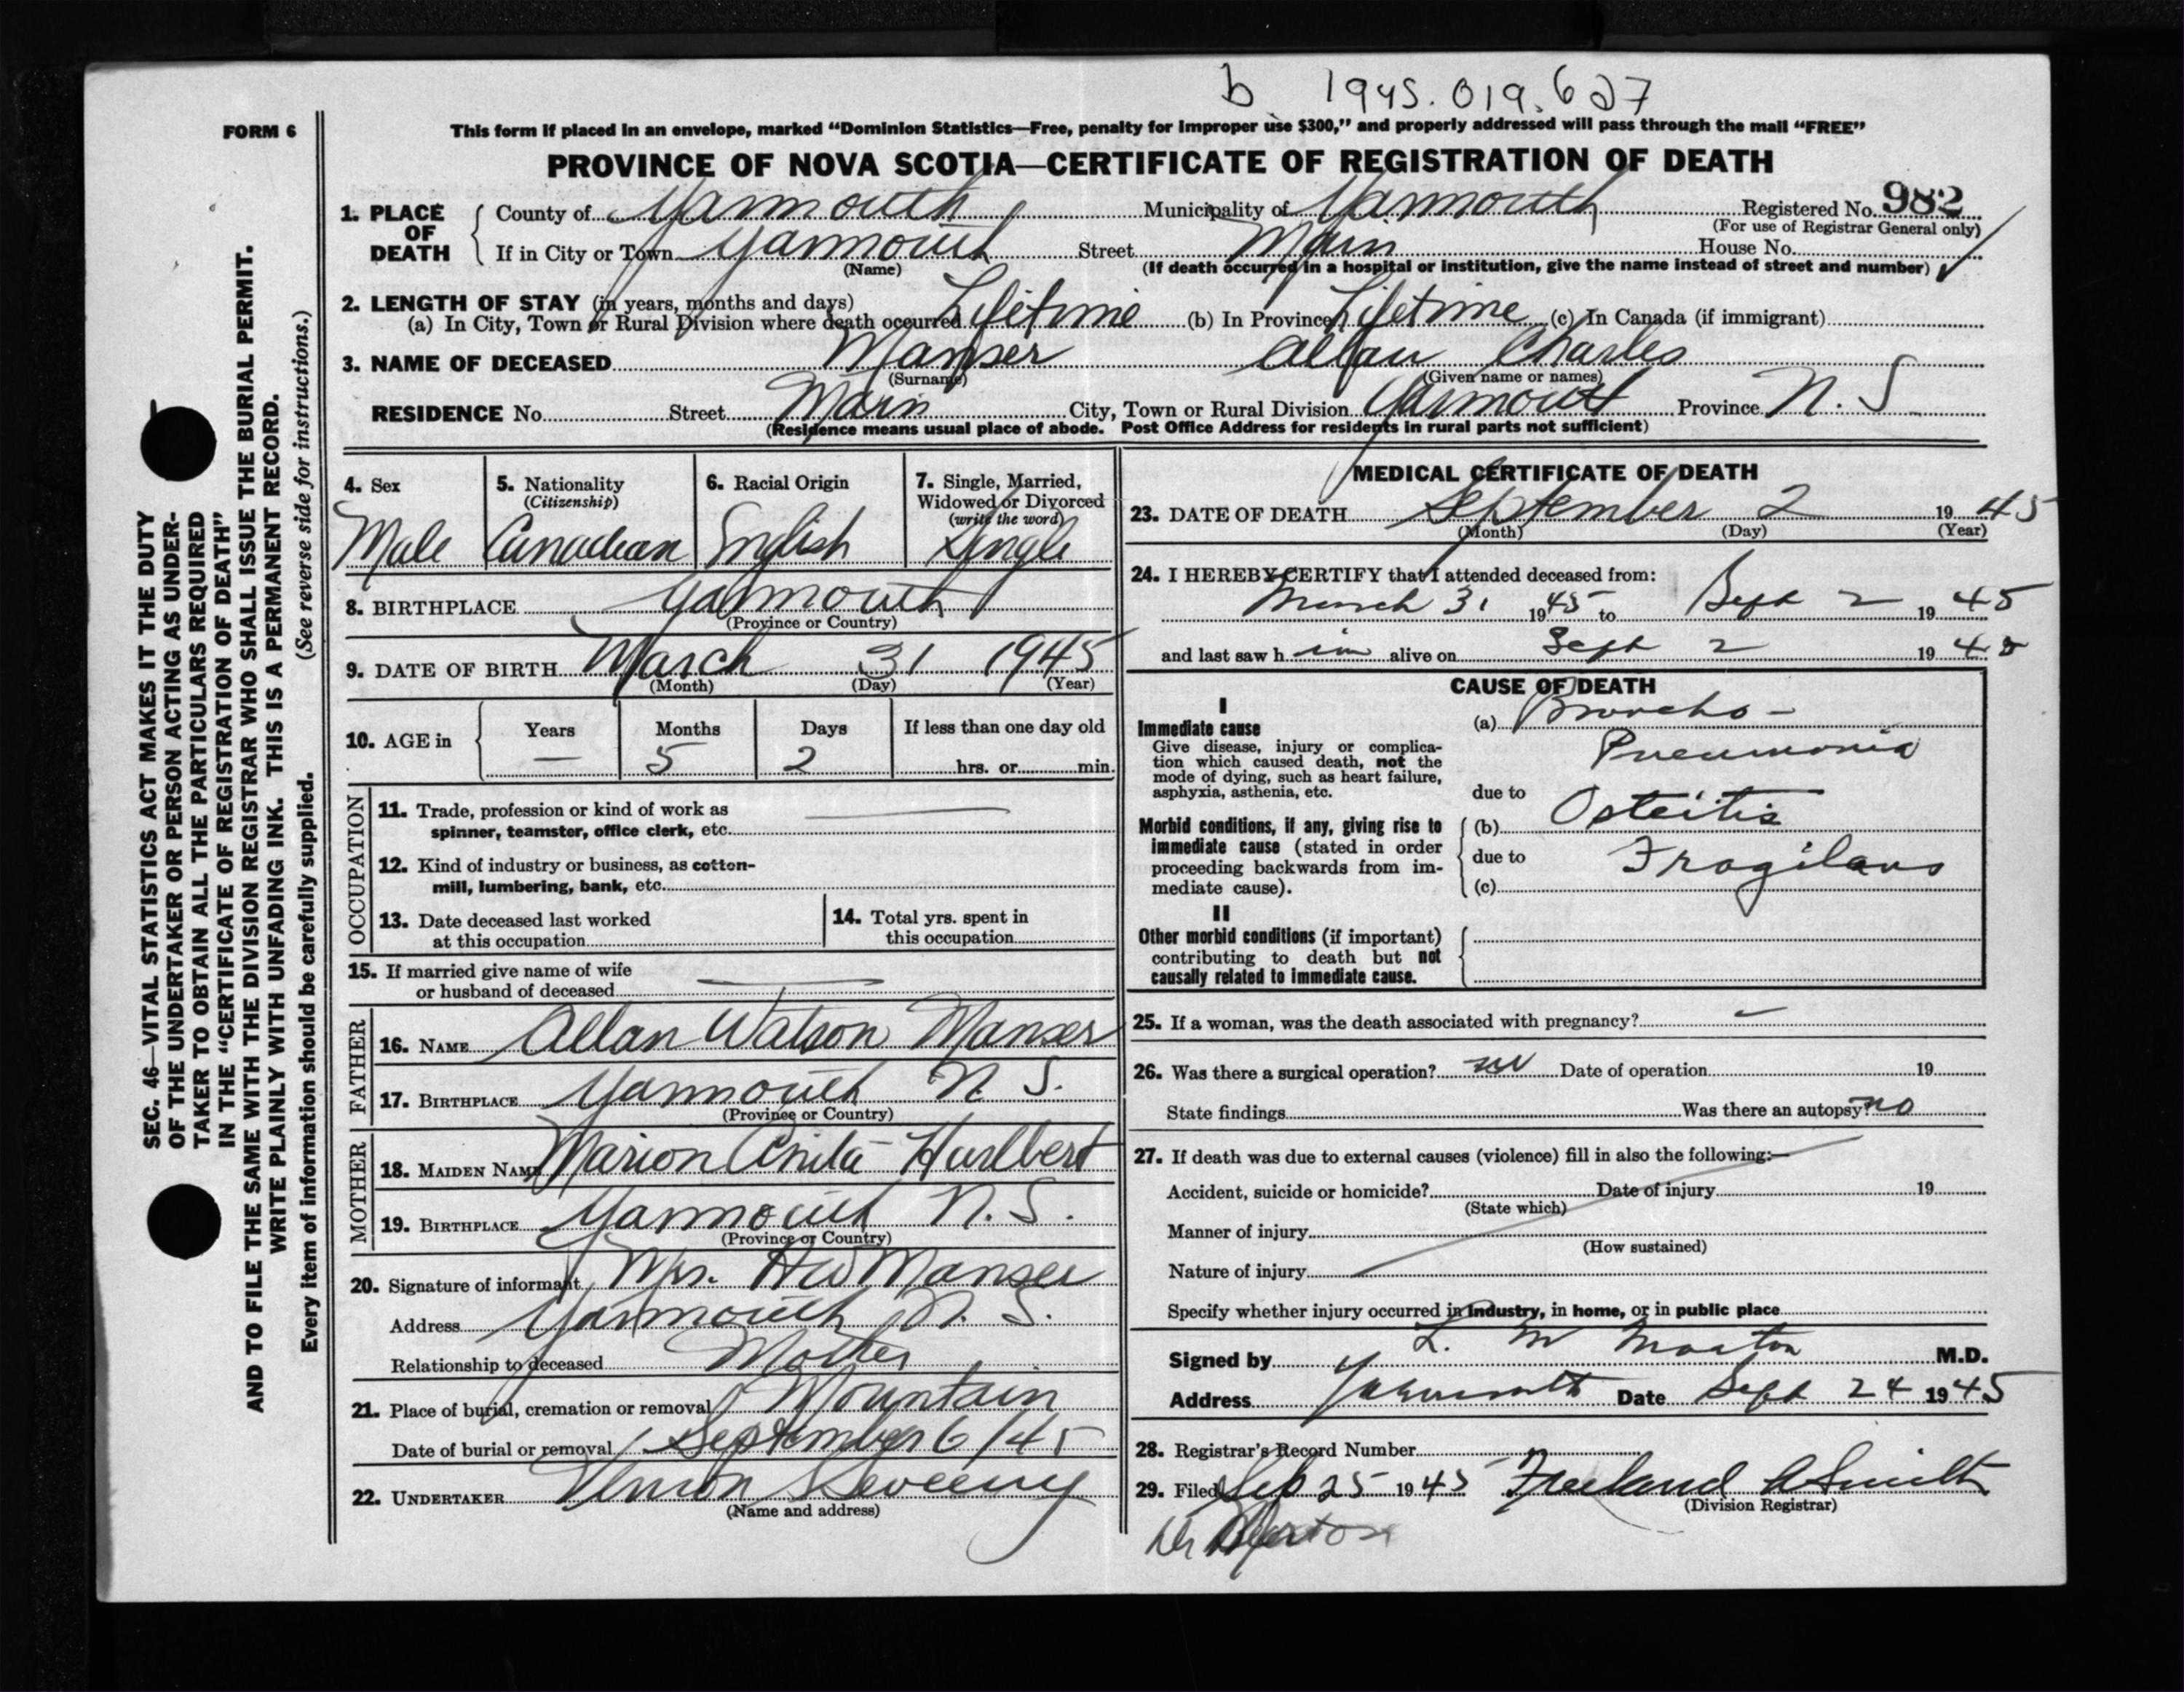 b 1945.019.627
FORM 6
This form if placed in an envelope, marked “Dominion Statistics—Free, penalty for improper use $300,” and properly addressed will pass through the mail “FREE”
PROVINCE OF NOVA SCOTIA—CERTIFICATE OF REGISTRATION OF DEATH
1. PLACE OF DEATH { County of Yarmouth Municipality of Yarmouth Registered No. 982
(For use of Registrar General only)
If in City or Town Yarmouth Street Main House No.
(Name) (If death occurred in a hospital or institution, give the name instead of street and number)
2. LENGTH OF STAY (in years, months and days)
(a) In City, Town or Rural Division where death occurred Lifetime (b) In Province Lifetime (c) In Canada (if immigrant)
3. NAME OF DECEASED Manser Allan Charles
(Surname) (Given name or names)
RESIDENCE No. Street Main City, Town or Rural Division Yarmouth Province N. S.
(Residence means usual place of abode. Post Office Address for residents in rural parts not sufficient)
4. Sex 5. Nationality (Citizenship) 6. Racial Origin 7. Single, Married, Widowed or Divorced (write the word)
Male Canadian English Single
8. BIRTHPLACE Yarmouth
(Province or Country)
9. DATE OF BIRTH March 31 1945
(Month) (Day) (Year)
10. AGE in { Years Months Days If less than one day old
— 5 2 hrs. or min.
OCCUPATION
11. Trade, profession or kind of work as
spinner, teamster, office clerk, etc.
12. Kind of industry or business, as cotton-
mill, lumbering, bank, etc.
13. Date deceased last worked
at this occupation
14. Total yrs. spent in
this occupation
15. If married give name of wife
or husband of deceased
FATHER
16. NAME Allan Watson Manser
17. BIRTHPLACE Yarmouth N. S.
(Province or Country)
MOTHER
18. MAIDEN NAME Marion Anita Hurlbert
19. BIRTHPLACE Yarmouth N. S.
(Province or Country)
20. Signature of informant Mrs. A W Manser
Address Yarmouth N. S.
Relationship to deceased Mother
21. Place of burial, cremation or removal Mountain
Date of burial or removal September 6/45
22. UNDERTAKER Vernon Sweeny
(Name and address)
MEDICAL CERTIFICATE OF DEATH
23. DATE OF DEATH September 2 19 45
(Month) (Day) (Year)
24. I HEREBY CERTIFY that I attended deceased from:
March 31 19 45 to Sept 2 19 45
and last saw h im alive on Sept 2 19 45
CAUSE OF DEATH
I
Immediate cause
Give disease, injury or complica-
tion which caused death, not the
mode of dying, such as heart failure,
asphyxia, asthenia, etc.
(a) Broncho-
Pneumonia
due to
Morbid conditions, if any, giving rise to
immediate cause (stated in order
proceeding backwards from im-
mediate cause).
(b) Osteitis
due to Fragilans
(c)
II
Other morbid conditions (if important)
contributing to death but not
causally related to immediate cause.
25. If a woman, was the death associated with pregnancy? —
26. Was there a surgical operation? no Date of operation 19
State findings Was there an autopsy? no
27. If death was due to external causes (violence) fill in also the following:—
Accident, suicide or homicide? Date of injury 19
(State which)
Manner of injury
(How sustained)
Nature of injury
Specify whether injury occurred in industry, in home, or in public place
Signed by L. M Morton M.D.
Address Yarmouth Date Sept 24 19 45
28. Registrar's Record Number
29. Filed Sep 25 19 45 Freeland A Smith
(Division Registrar)
Dr Morton
SEC. 46—VITAL STATISTICS ACT MAKES IT THE DUTY
OF THE UNDERTAKER OR PERSON ACTING AS UNDER-
TAKER TO OBTAIN ALL THE PARTICULARS REQUIRED
IN THE “CERTIFICATE OF REGISTRATION OF DEATH”
AND TO FILE THE SAME WITH THE DIVISION REGISTRAR WHO SHALL ISSUE THE BURIAL PERMIT.
WRITE PLAINLY WITH UNFADING INK. THIS IS A PERMANENT RECORD.
Every item of information should be carefully supplied. (See reverse side for instructions.)